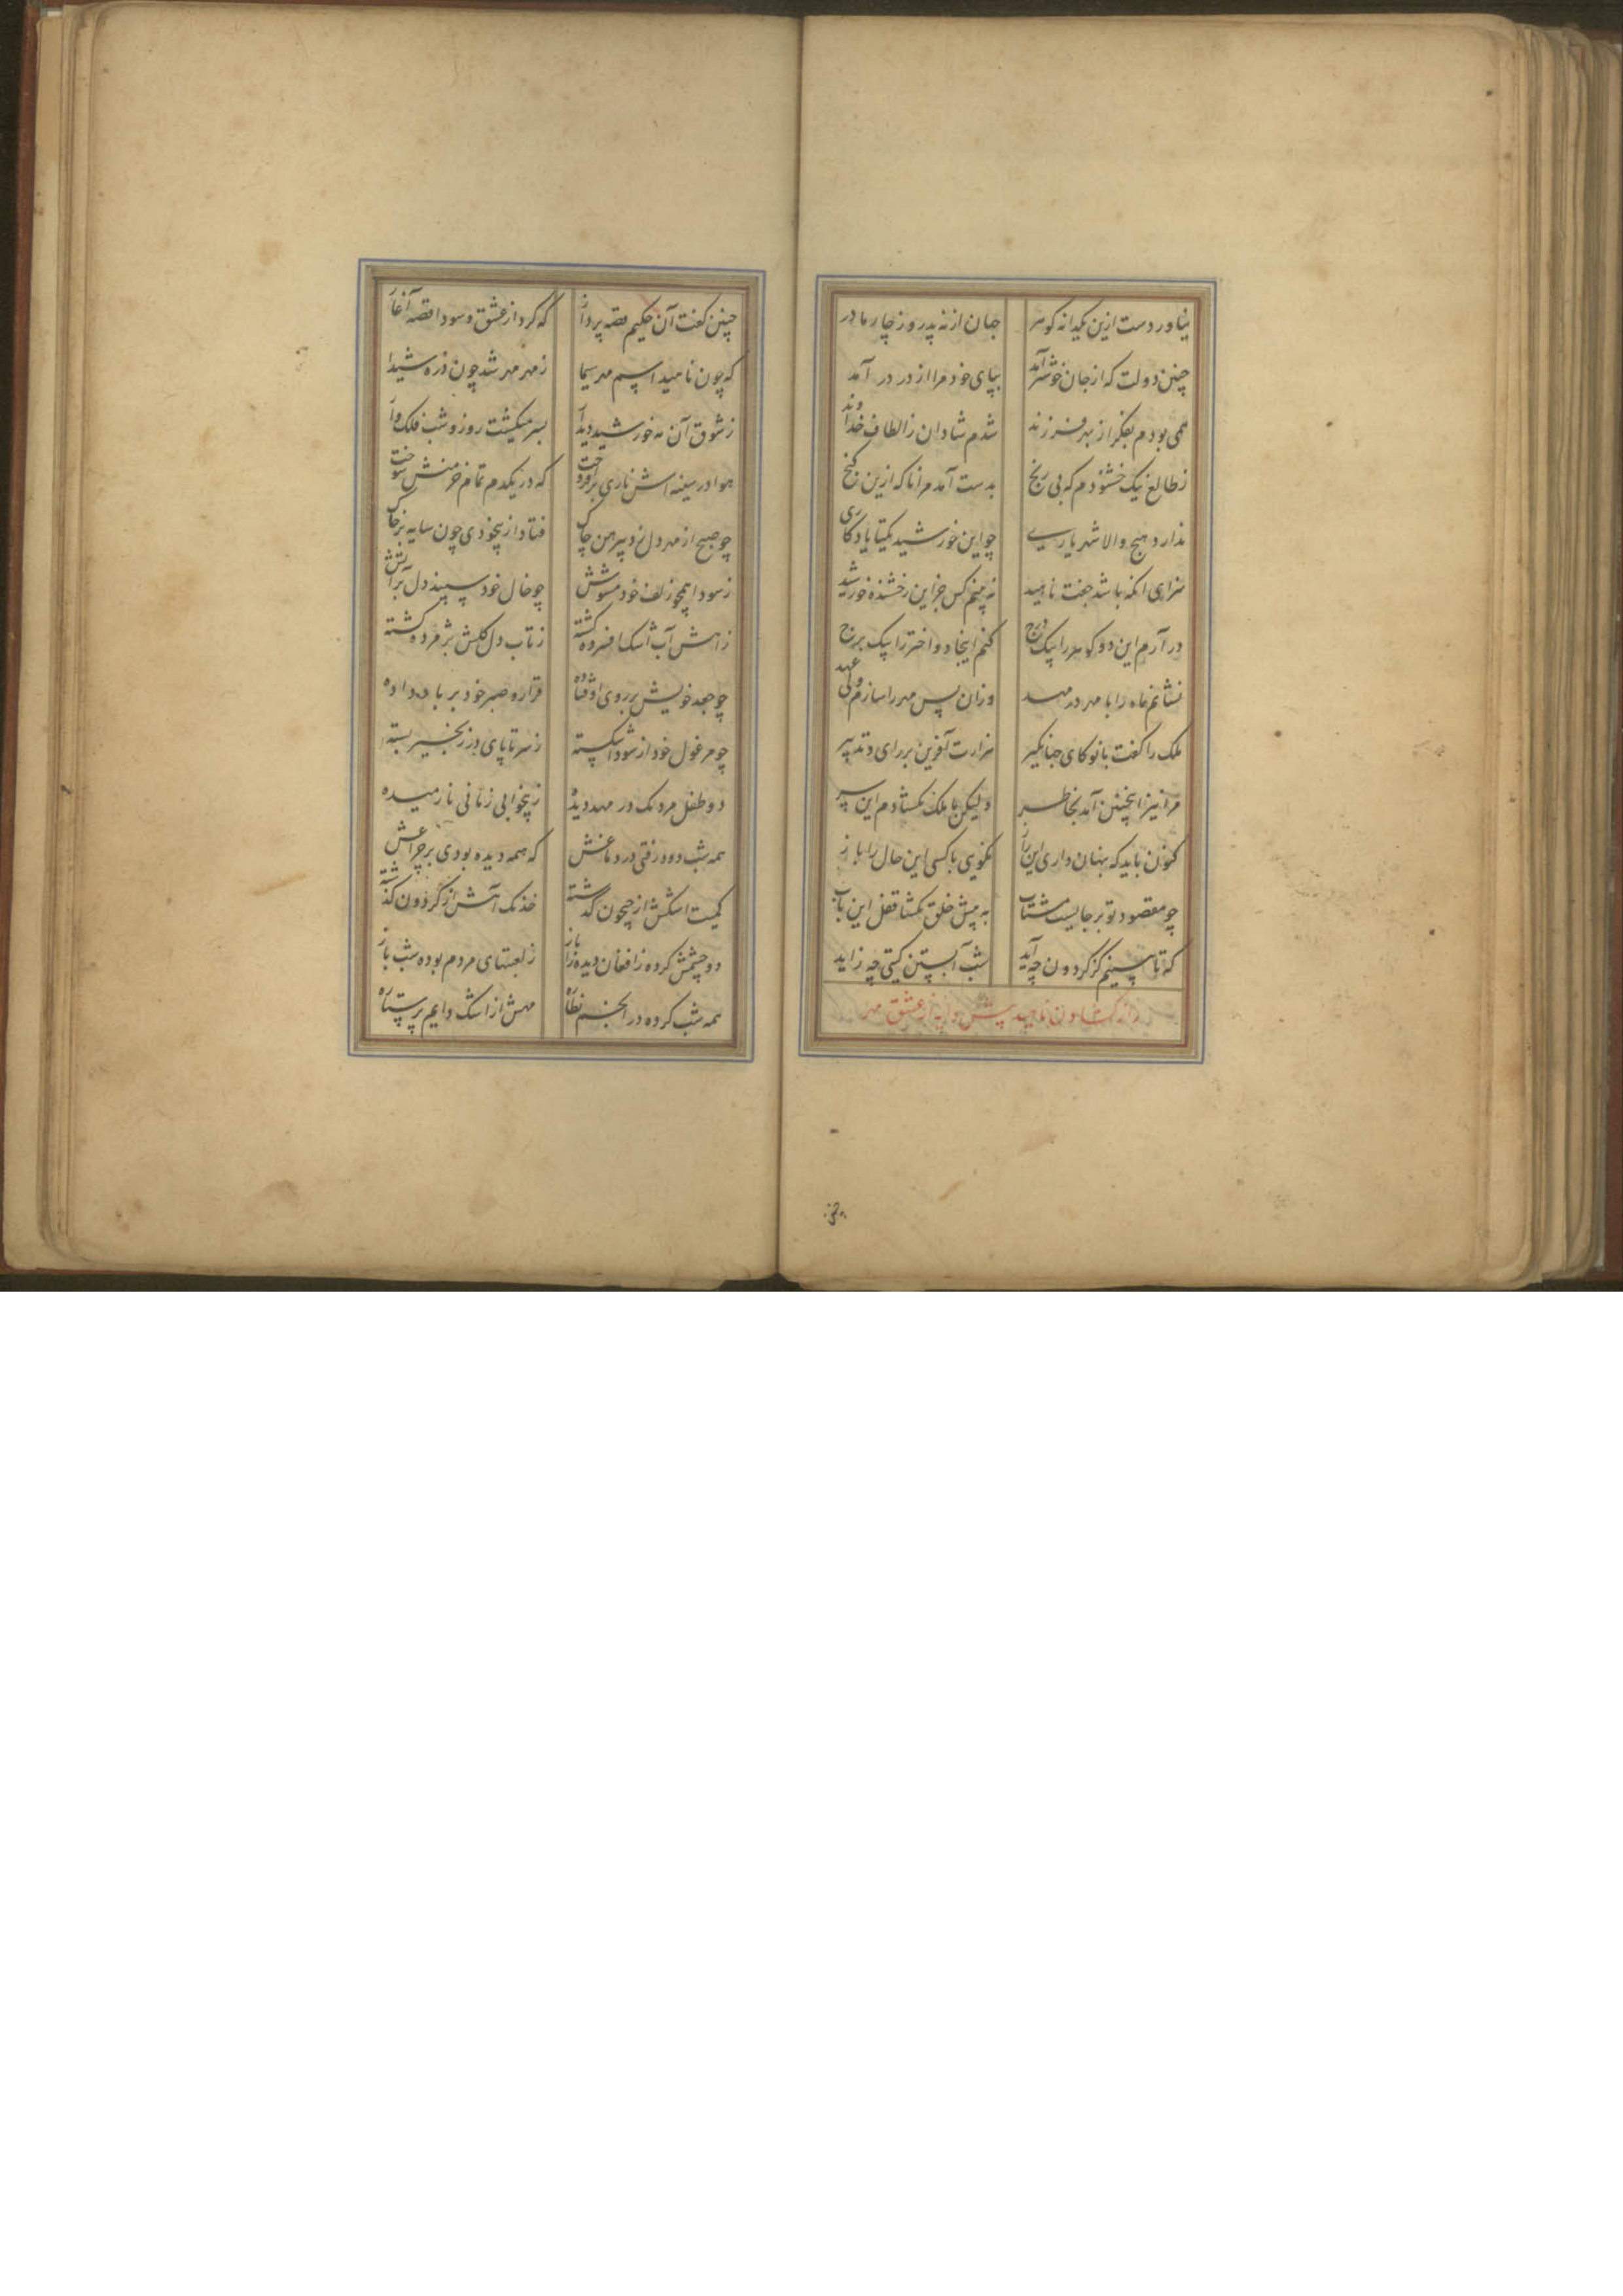 نیاوردست ازین یکدانه گوهر جهان از نه پدر وز چار مادر
چنین دولت که از جان خوشتر آمد بپای خود مرا از در در آمد
همی بودم بفکر از بهر فرزند شدم شادان ز الطاف خداوند
ز طالع نیک خشنودم که بی رنج بدست آمد مرا ناکه ازین گنج
ندارد هیچ والا شهریاری چو این خورشید یکتا یادگاری
سزای انکه باشد جفت ناهید نه بینم کس جز این رخشنده خورشید
در آرم این دو گوهر را بیک درج کنم اینجا دو اختر را بیک برج
نشانم ماه را با مهر در مهد وزان پس مهر را سازم ولی عهد
ملک را گفت بانو کای جهانگیر هزارت آفرین بر رای و تدبیر
مرا نیز اینچنین آمد بخاطر ولیکن با ملک نگشادم این سر
کنون باید که پنهان داری این راز نگویی با کسی این حال را باز
چو مقصود تو بر جایست مشتاب به پیش خلق نگشا قفل این باب
که تا بینیم کز گردون چه آید شب آبستن گیتی چه زاید
راز گشادن ناهید پیش دایه از عشق مهر
چنین گفت آن حکیم قصه پرداز که کرد از عشق و سودا قصه آغاز
که چون ناهید اسیم مهر سیما ز مهر مهر شد چون ذره شیدا
ز شوق آن مه خورشید دیدار بسر میگشت روز و شب فلک وار
هوا در سینه اش ناری برافروخت که در یکدم تمام خرمنش سوخت
چو صبح از مهر دل زد پیرهن چاک فتاد از بیخودی چون سایه بر خاک
ز سودا همچو زلف خود مشوش چو خال خود سپند دل بر آتش
ز آهش آب اشک افسرده گشته ز تاب دل گلش پژمرده گشته
چو جعد خویش بر روی اوفتاده قرار و صبر خود بر باد داده
چو مرغول خود از سودا شکسته ز سر تا پای در زنجیر بسته
دو طفل مردمک در مهد دیده ز بیخوابی زمانی نارمیده
همه شب دود رفتی در دماغش که همه دیده بودی بر چراغش
کمیت اشکش از جیحون گذشته خدنگ آهش از گردون گذشته
دو چشمش کرده ز افغان دیده را باز ز لعبتهای مردم بوده شب باز
همه شب کرده در انجم نظاره مهش از اشک دایم پر ستاره